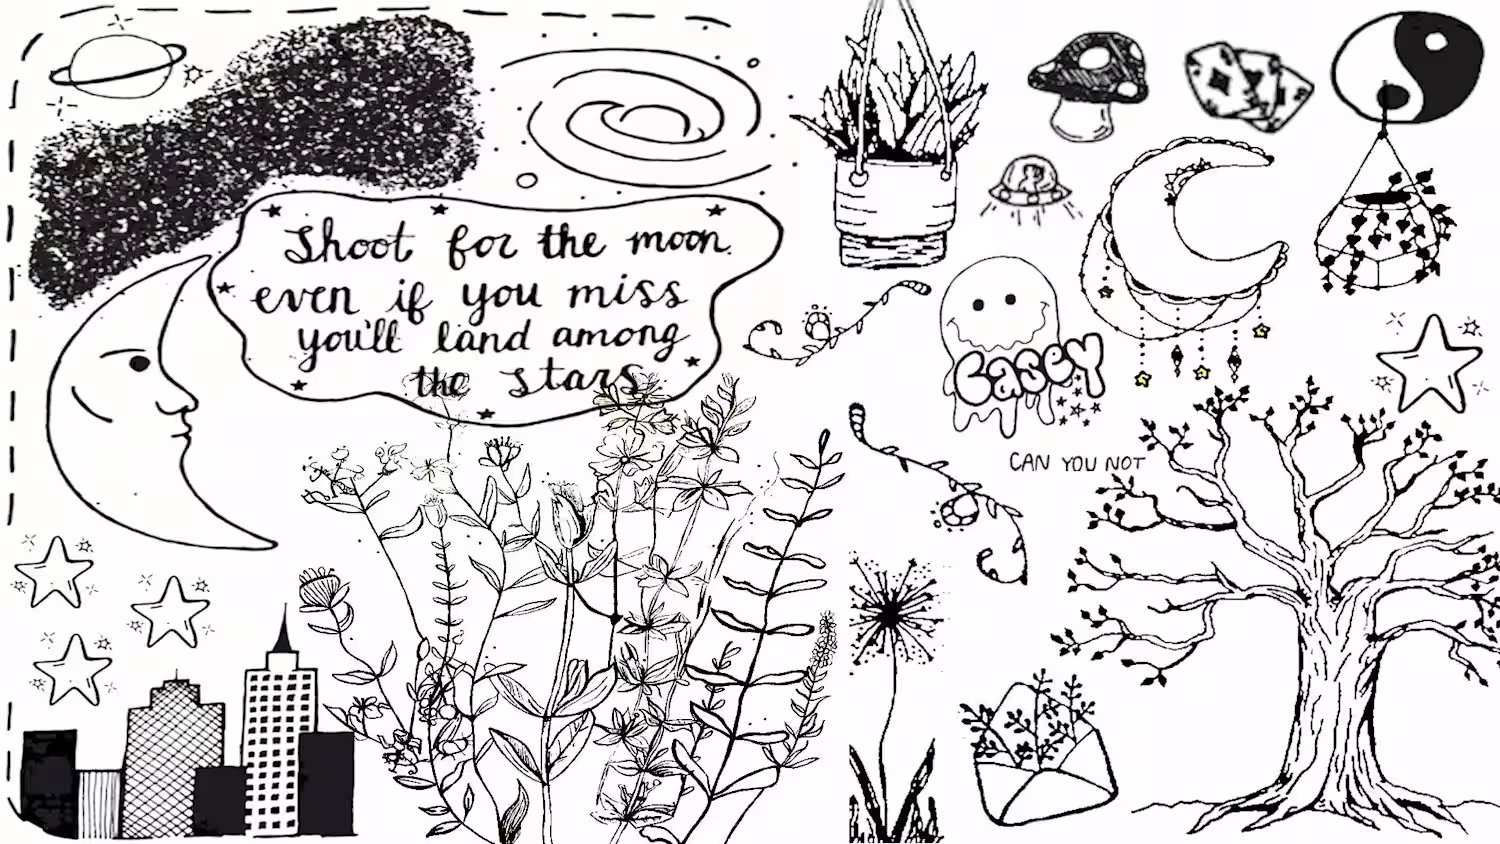 Shoot for the moon
even if you miss
you'll land among
the stars
Casey
CAN YOU NOT